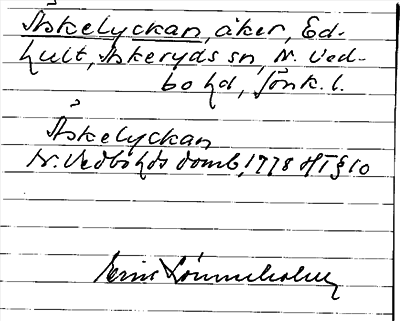 Åskelyckan, åker, Ed-
hult, Askeryds sn, N. Ved-
bo hd, Jönk. l.
Åskelyckan
N. Vedbo hds domb, 1778 HT § 10